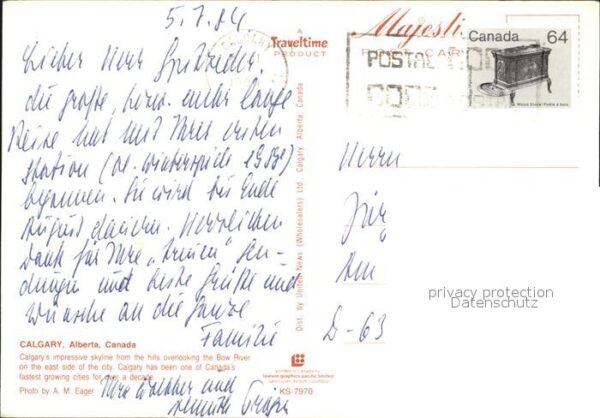 5.7.84
Lieber Herr
die große,
Reise hat mit Ihrer ersten
Station (Ol. Winterspiele 1988)
begonnen. Sie wird bis Ende
August dauern. Herzlichen
Dank für Ihre „treuen" Sen-
dungen und beste Grüße und
Wünsche an die ganze
Familie
Ihre und
CALGARY, Alberta, Canada
Calgary's impressive skyline from the hills overlooking the Bow River
on the east side of the city. Calgary has been one of Canada's
fastest growing cities for over a decade.
Photo by A. M. Eager
KS-7970
A
Traveltime
PRODUCT
Dist. by United News (Wholesalers) Ltd. Calgary, Alberta, Canada
Majesti
POST CAR
POSTAL COD
CODE
Canada 64
Herrn
Am
D-63
privacy protection
Datenschutz